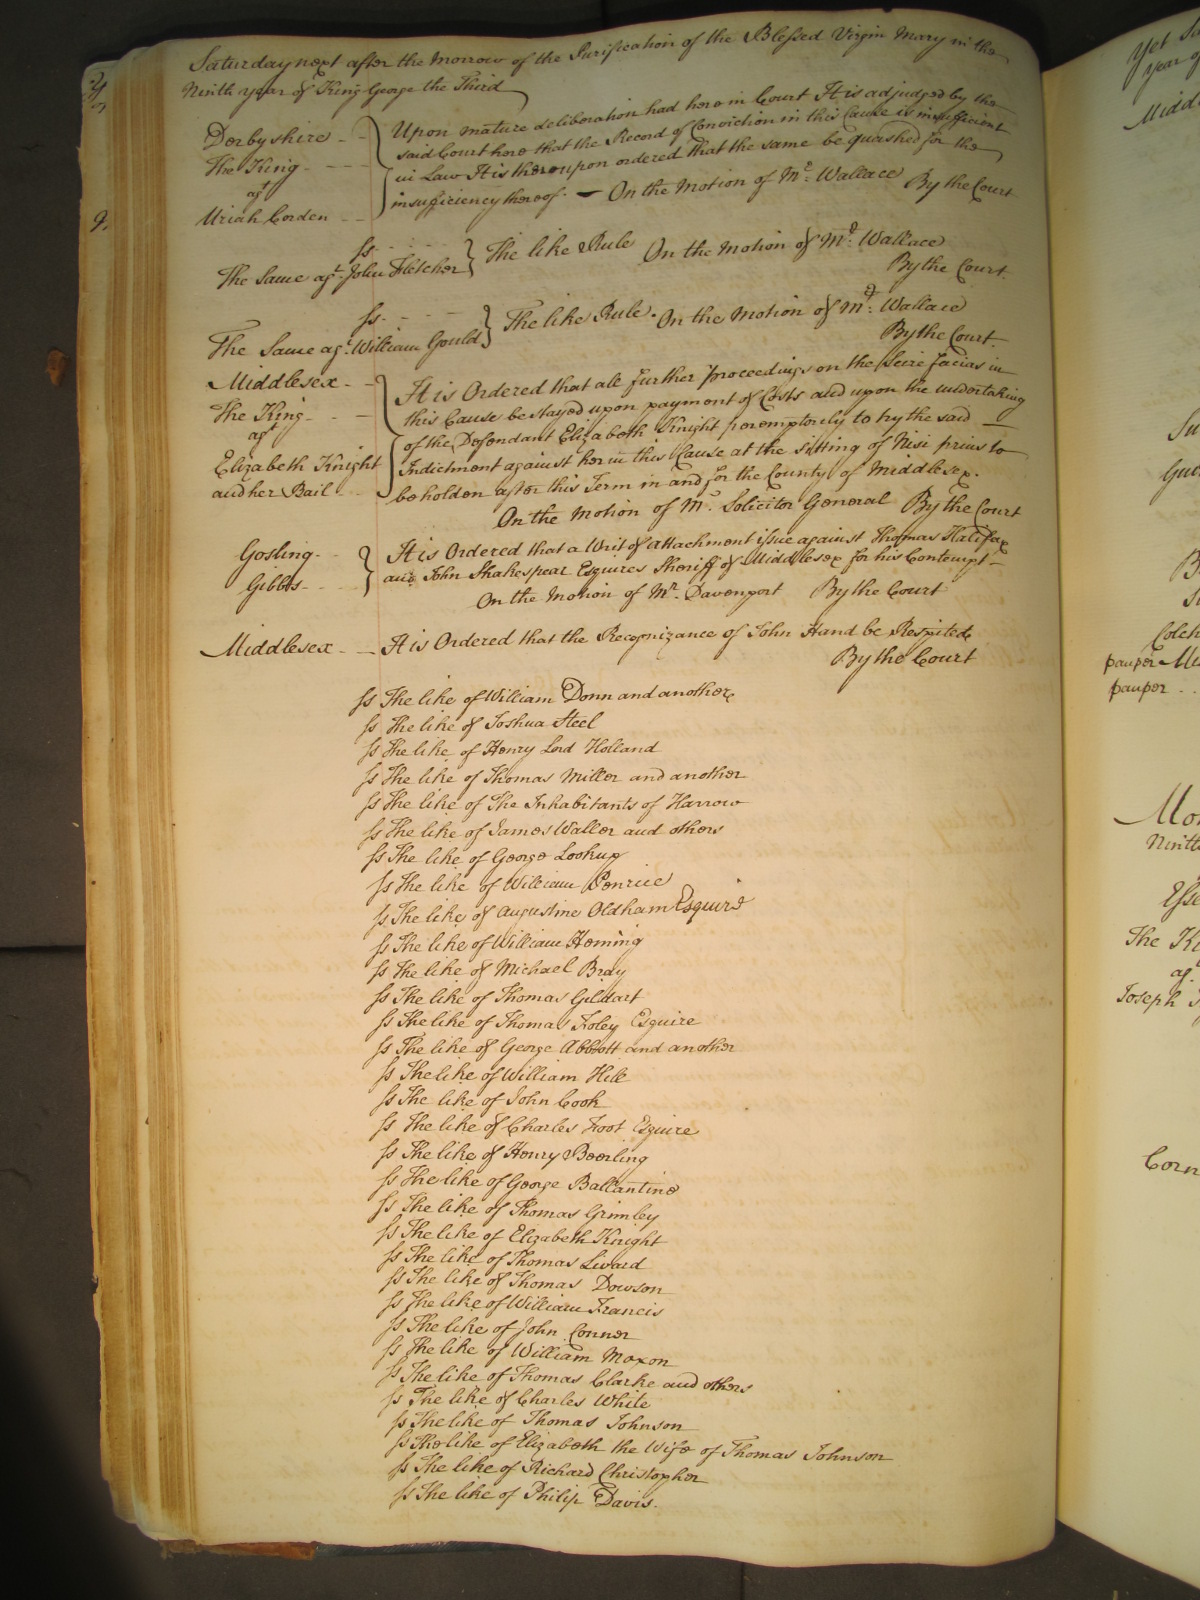 Saturday next after the Morrow of the Purification of the Blessed Virgin Mary in the
Ninth year of King George the Third
Derbyshire
The King
agt
Uriah Corden
Upon mature deliberation had here in Court It is adjudged by the
said Court here that the Record of Conviction in this Cause is insufficient
in Law It is thereupon ordered that the same be quashed for the
insufficiency thereof. — On the Motion of Mr. Wallace By the Court
9.
Ss
The Same agt. John Fletcher
The like Rule On the Motion of Mr. Wallace
By the Court.
Ss
The Same agt. William Gould
The like Rule. On the Motion of Mr. Wallace
By the Court.
Middlesex
The King
agt
Elizabeth Knight
and her Bail
It is Ordered that all further proceedings on the Scire facias in
this Cause be stayed upon payment of Costs and upon the undertaking
of the Defendant Elizabeth Knight peremptorily to try the said
Indictment against her in this Cause at the sitting of Nisi prius to
be holden after this Term in and for the County of Middlesex.
On the Motion of Mr. Solicitor General By the Court
Gosling
Gibbs
It is Ordered that a Writ of attachment issue against Thomas Halifax
and John Shakespear Esquires Sheriff of Middlesex for his Contempt
On the Motion of Mr. Davenport By the Court
Middlesex It is Ordered that the Recognizance of John Hand be Respited
By the Court
Ss The like of William Donn and another
Ss The like of Joshua Steel
Ss The like of Henry Lord Holland
Ss The like of Thomas Miller and another
Ss The like of The Inhabitants of Harrow
Ss The like of James Waller and others
Ss The like of George Lookup
Ss The like of William Penrice
Ss The like of Augustine Oldham Esquire
Ss The like of William Heming
Ss The like of Michael Bray
Ss The like of Thomas Gildart
Ss The like of Thomas Foley Esquire
Ss The like of George Abbott and another
Ss The like of William Hill
Ss The like of John Cook
Ss The like of Charles Foot Esquire
Ss The like of Henry Beerling
Ss The like of George Ballantine
Ss The like of Thomas Grimley
Ss The like of Elizabeth Knight
Ss The like of Thomas
Ss The like of Thomas Dowson
Ss The like of William Francis
Ss The like of John Conner
Ss The like of William Moxon
Ss The like of Thomas Clarke and others
Ss The like of Charles White
Ss The like of Thomas Johnson
Ss The like of Elizabeth the Wife of Thomas Johnson
Ss The like of Richard Christopher
Ss The like of Philip Davis.
Yet
year of
pauper
pauper
The
agt.
Joseph